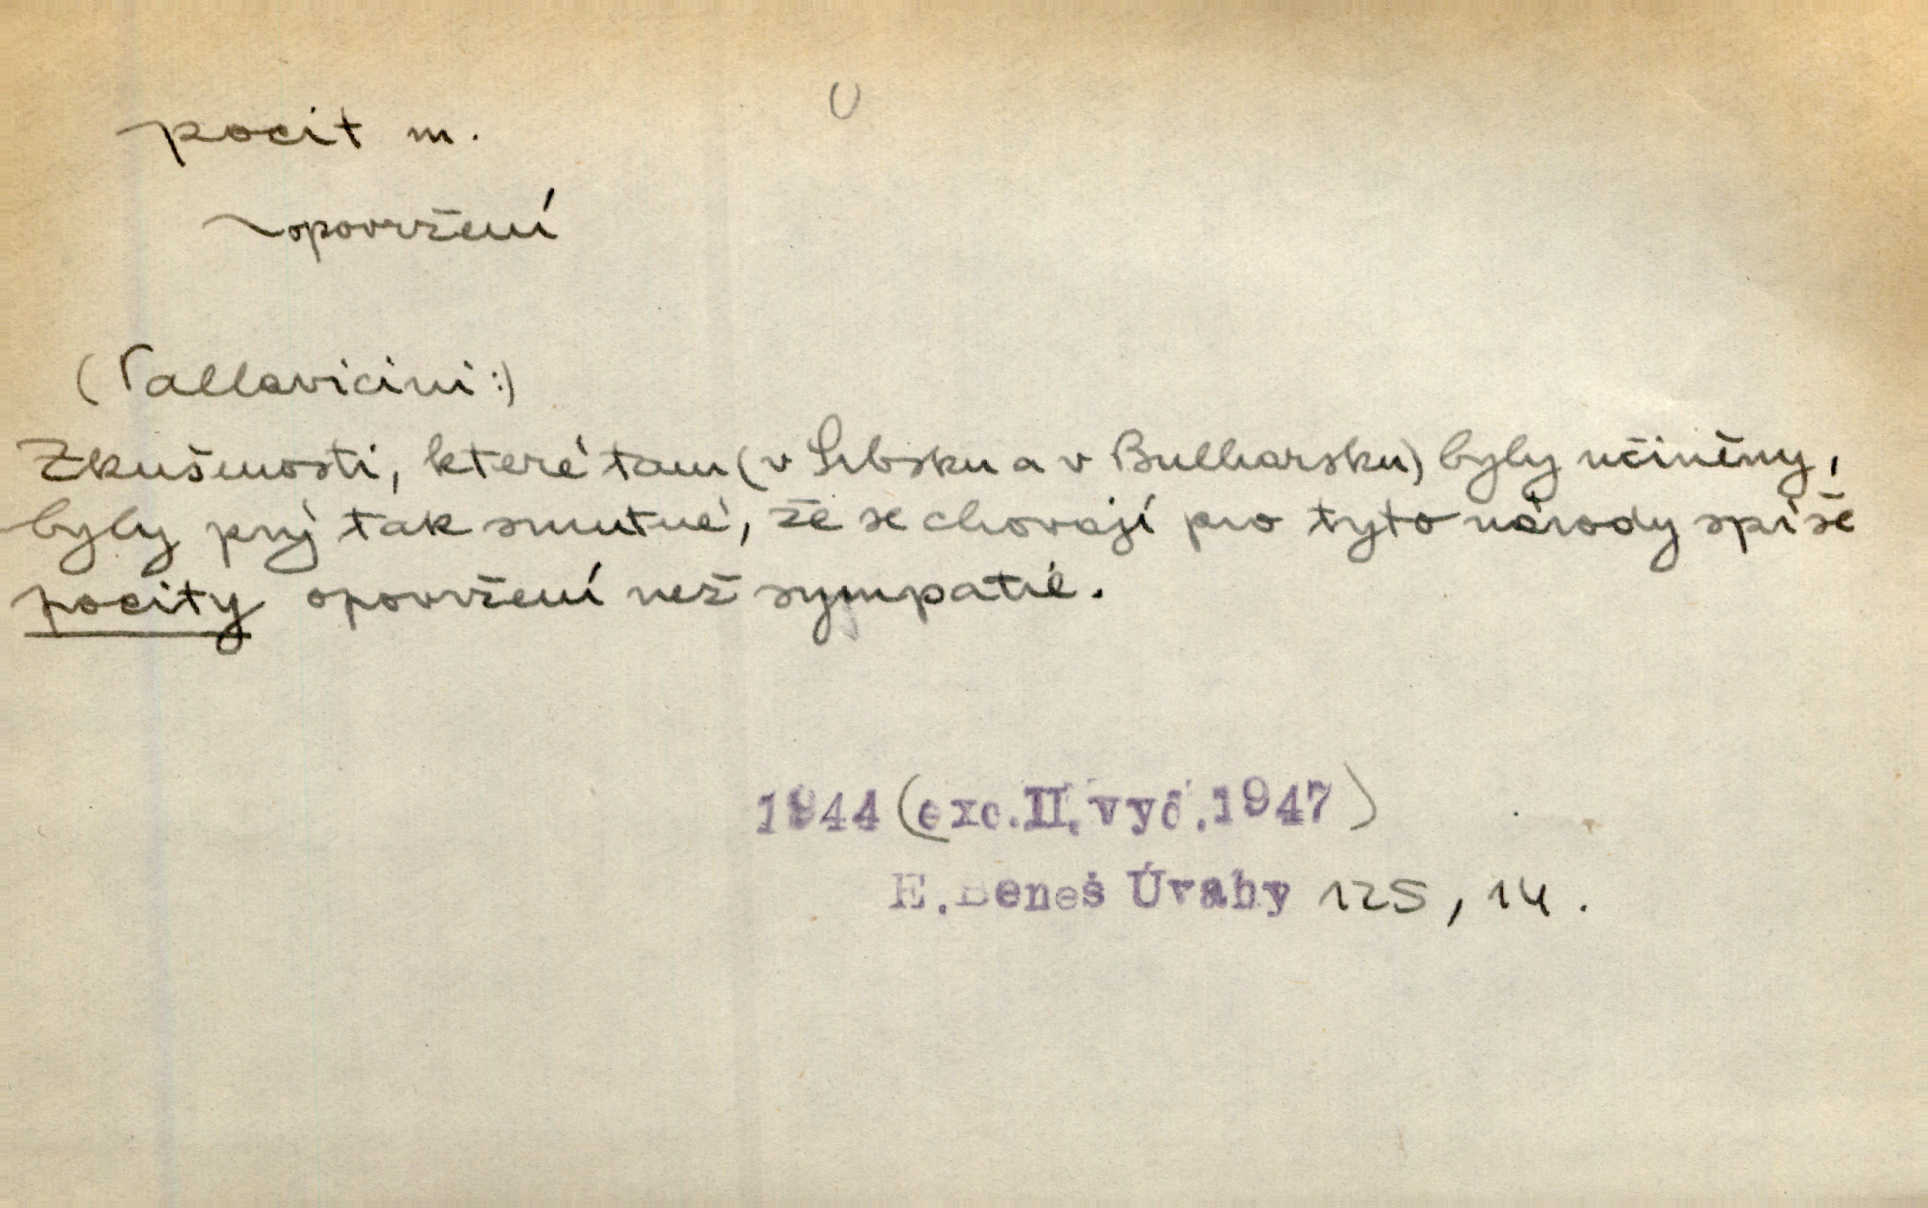 U
pocit m.
~ opovržení
(Pallavicini:)
Zkušenosti, které tam (v Srbsku a v Bulharsku) byly učiněny,
byly prý tak smutné, že se chovají pro tyto národy spíše
pocity opovržení než sympatie.
1944 (exc. II. vyd. 1947)
E. Beneš Úvahy 125, 14.